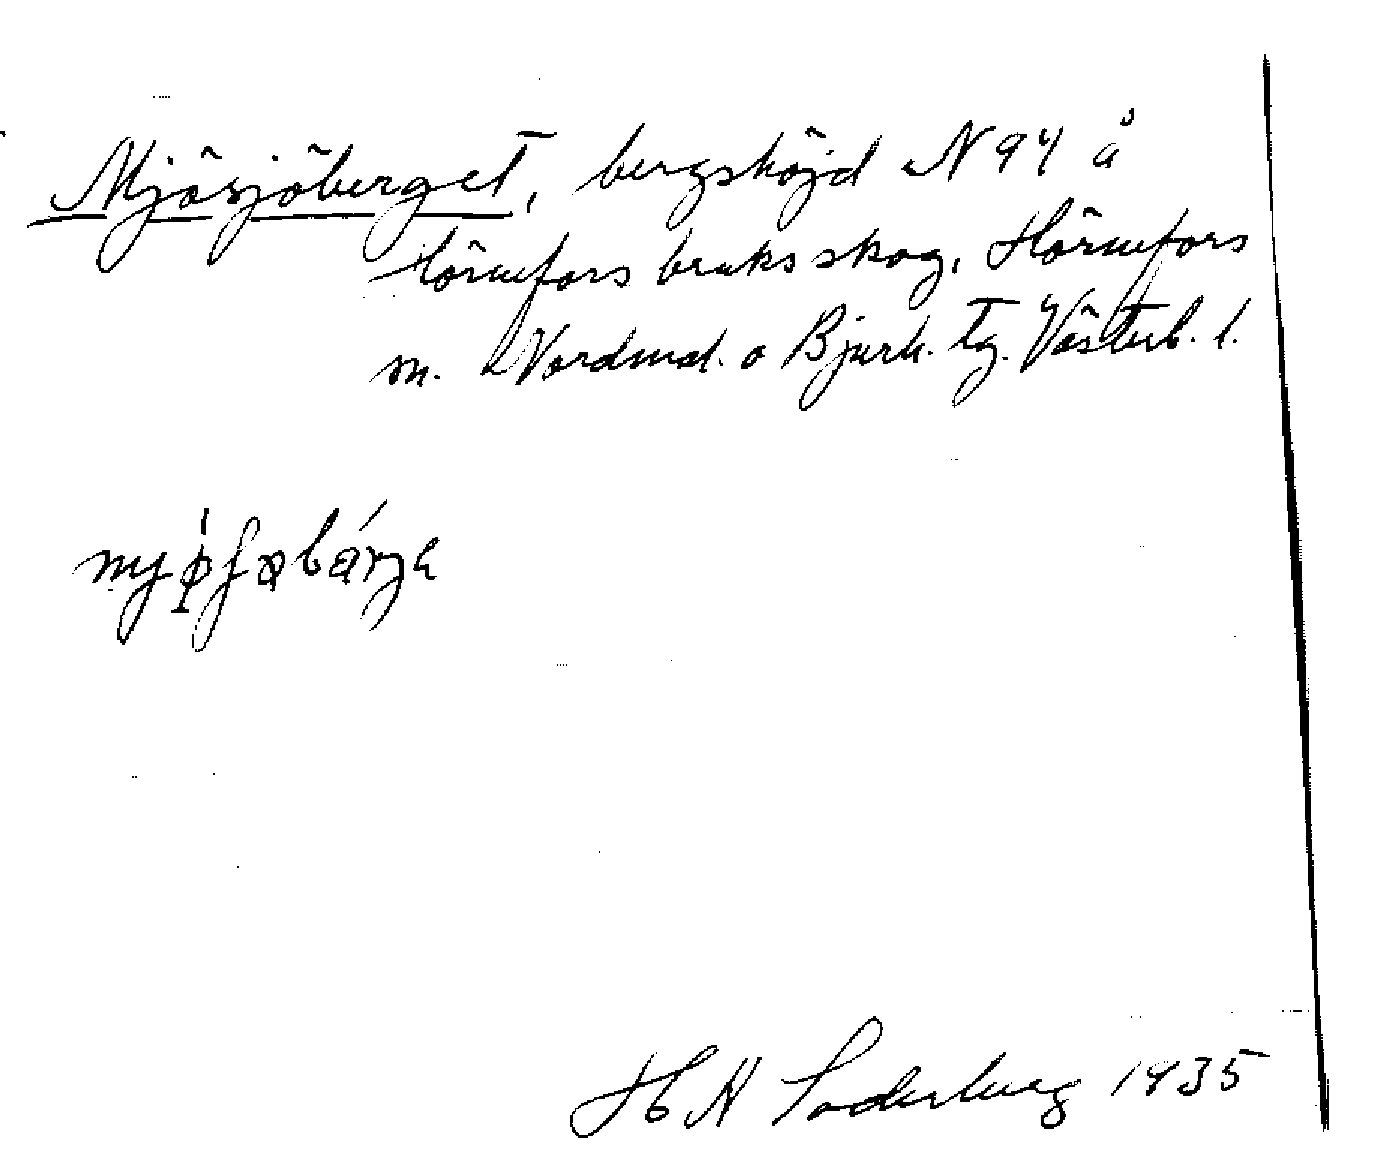 Mjösjöberget, bergshöjd N 94 å
Hörnefors bruks skog, Hörnefors
m. Nordmal. o Bjurh. tg. Västerb. l.
H N Söderberg 1935